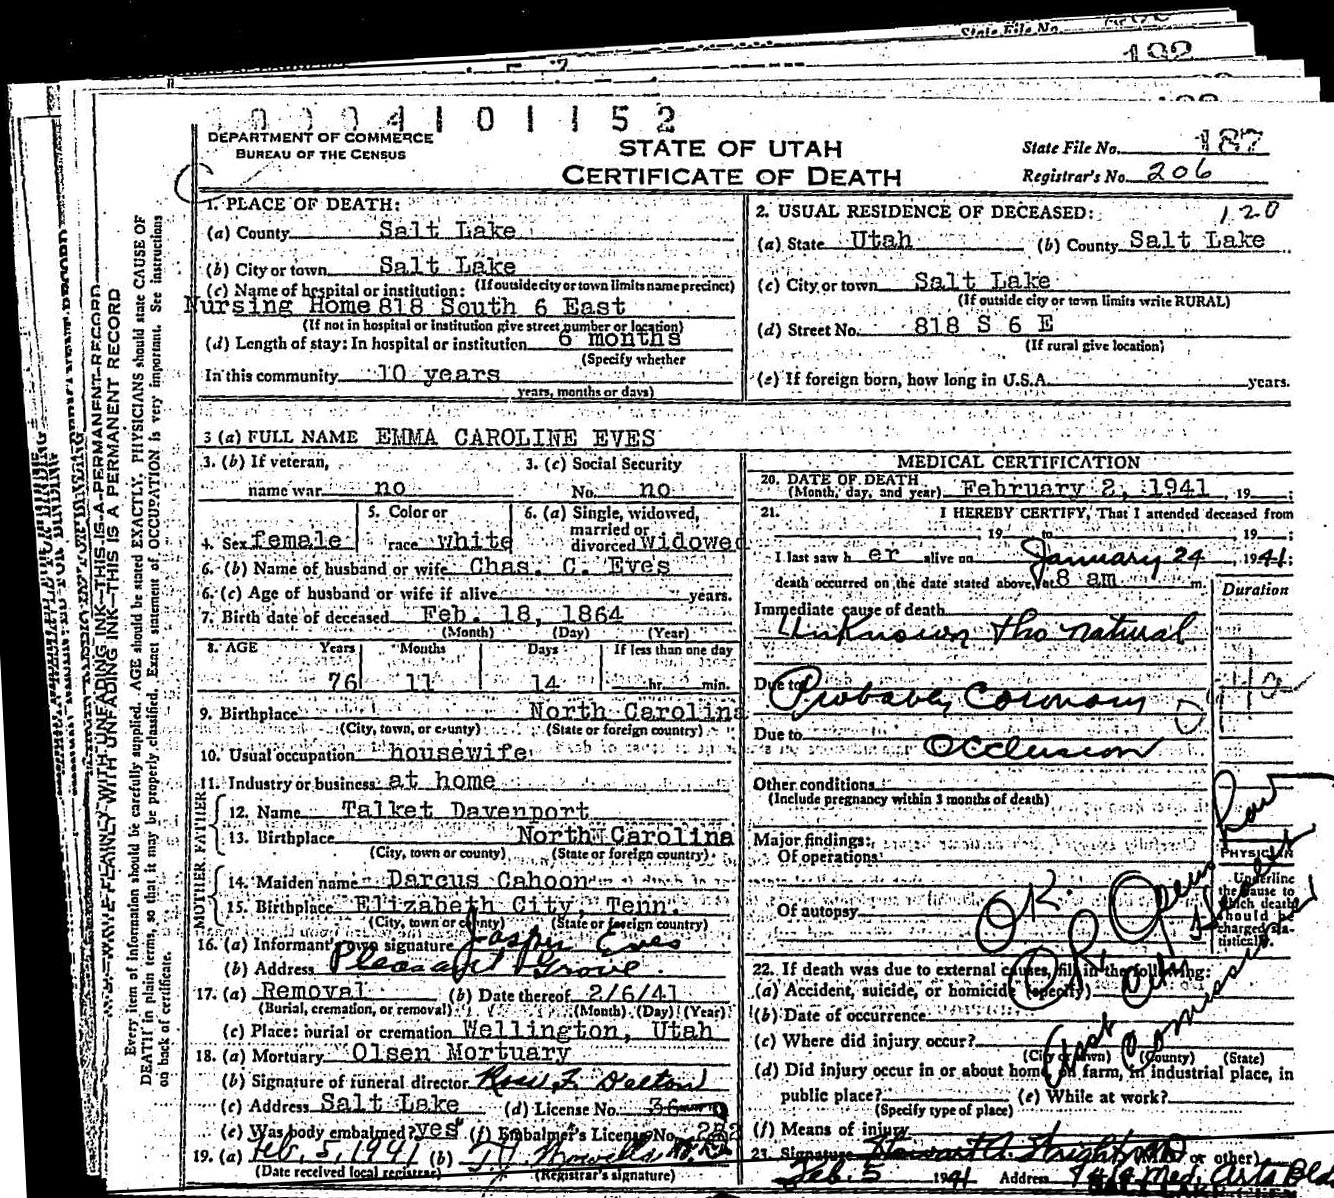 State File No.
192
0004101152
DEPARTMENT OF COMMERCE
BUREAU OF THE CENSUS
STATE OF UTAH
CERTIFICATE OF DEATH
State File No. 187
Registrar's No. 206
1. PLACE OF DEATH:
(a) County Salt Lake
(b) City or town Salt Lake
(c) Name of hospital or institution: (If outside city or town limits name precinct)
Nursing Home 818 South 6 East
(If not in hospital or institution give street number or location)
(d) Length of stay: In hospital or institution 6 months
(Specify whether
In this community 10 years
years, months or days)
2. USUAL RESIDENCE OF DECEASED: 120
(a) State Utah (b) County Salt Lake
(c) City or town Salt Lake
(If outside city or town limits write RURAL)
(d) Street No. 818 S 6 E
(If rural give location)
(e) If foreign born, how long in U.S.A. years.
3 (a) FULL NAME EMMA CAROLINE EVES
3. (b) If veteran, 3. (c) Social Security
name war no No. no
4. Sex female 5. Color or race white 6. (a) Single, widowed, married or divorced Widowed
6. (b) Name of husband or wife Chas. C. Eves
6. (c) Age of husband or wife if alive years.
7. Birth date of deceased Feb. 18, 1864
(Month) (Day) (Year)
8. AGE Years Months Days If less than one day
76 11 14 hr. min.
9. Birthplace North Carolina
(City, town, or county) (State or foreign country)
10. Usual occupation housewife
11. Industry or business at home
FATHER
12. Name Talket Davenport
13. Birthplace North Carolina
(City, town or county) (State or foreign country)
MOTHER
14. Maiden name Darcus Cahoon
15. Birthplace Elizabeth City, Tenn.
(City, town or county) (State or foreign country)
16. (a) Informant's own signature Jasper Eves
(b) Address Pleasant Grove.
17. (a) Removal (b) Date thereof 2/6/41
(Burial, cremation, or removal) (Month) (Day) (Year)
(c) Place: burial or cremation Wellington, Utah
18. (a) Mortuary Olsen Mortuary
(b) Signature of funeral director
(c) Address Salt Lake (d) License No.
(e) Was body embalmed? yes (f) Embalmer's License No.
19. (a) Feb. 5, 1941 (b)
(Date received local registrar) (Registrar's signature)
MEDICAL CERTIFICATION
20. DATE OF DEATH
(Month, day, and year) February 2, 1941, 19
21. I HEREBY CERTIFY, That I attended deceased from
19 to 19
I last saw h er alive on January 24, 1941;
death occurred on the date stated above, at 8 am m.
Duration
Immediate cause of death
Unknown tho natural
Due to Probably Coronary
Due to Occlusion
Other conditions
(Include pregnancy within 3 months of death)
Major findings:
Of operations
Of autopsy
PHYSICIAN
Underline
the cause to
which death
should be
charged sta-
tistically.
OK.
22. If death was due to external causes, fill in the following:
(a) Accident, suicide, or homicide (specify)
(b) Date of occurrence
(c) Where did injury occur?
(City or town) (County) (State)
(d) Did injury occur in or about home, on farm, in industrial place, in
public place? (e) While at work?
(Specify type of place)
(f) Means of injury
23. Signature (M.D. or other)
Feb. 5 1941 Address Med. Arts Bld
WRITE PLAINLY WITH UNFADING INK—THIS IS A PERMANENT RECORD
Every item of information should be carefully supplied. AGE should be stated EXACTLY. PHYSICIANS should state CAUSE OF
DEATH in plain terms, so that it may be properly classified. Exact statement of OCCUPATION is very important. See instructions
on back of certificate.